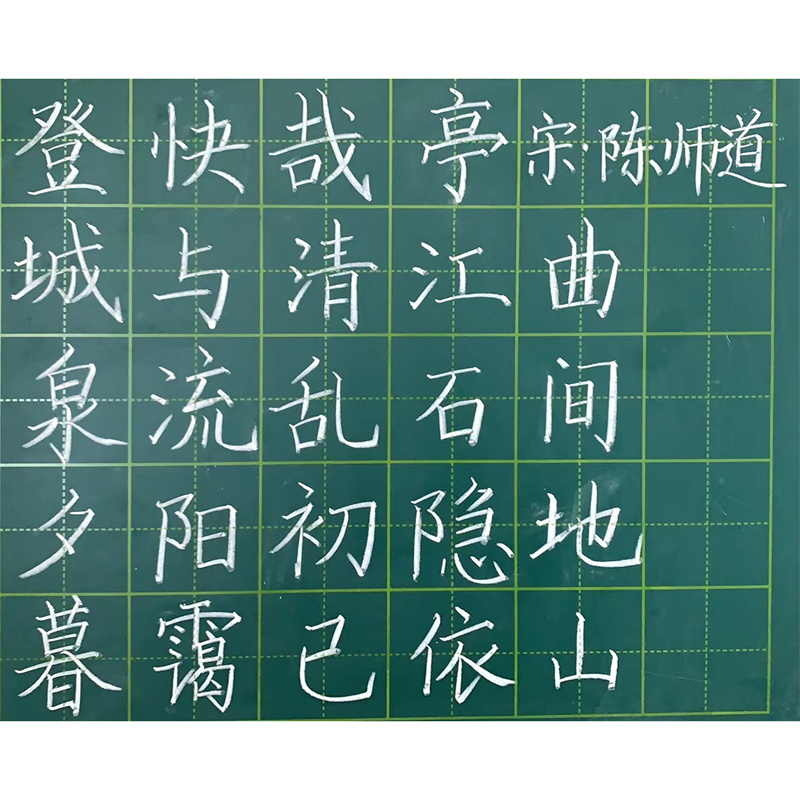 登快哉亭 宋·陈师道
城与清江曲
泉流乱石间
夕阳初隐地
暮霭已依山